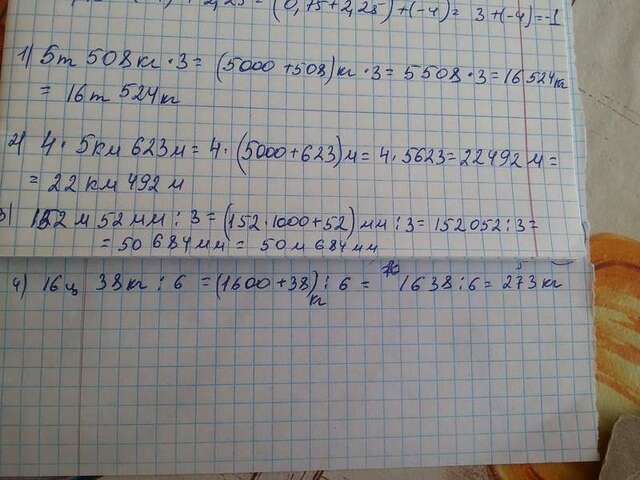 2,25 = (0,75+2,25)+(-4)= 3+(-4)=-1
1) 5т 508кг·3= (5000+508)кг·3= 5508·3=16524кг
= 16т 524кг
2) 4·5км 623м=4·(5000+623)м=4·5623=22492м=
= 22км 492м
3) 152м 52мм:3=(152·1000+52)мм:3=152052:3=
= 50684мм= 50м 684мм
4) 16ц 38кг:6 =(1600+38)кг:6= 1638:6=273кг